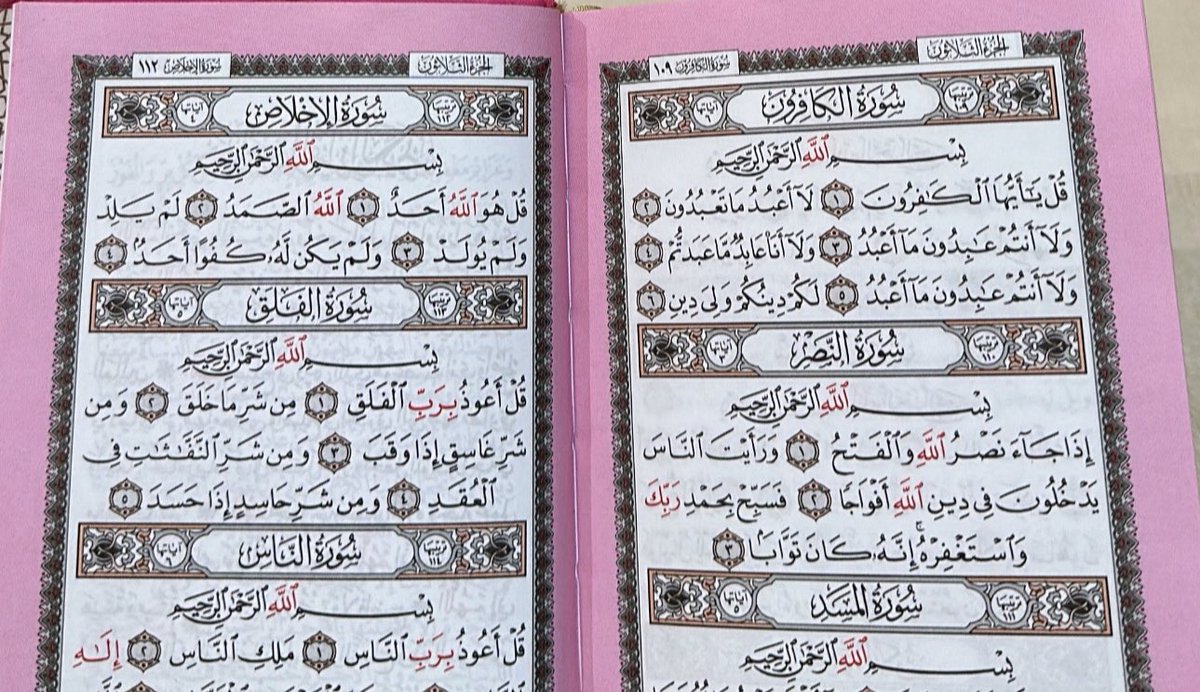 الجزء الثلاثون
سورة الكافرون ١٠٩
سُورَةُ الكَافِرُونَ
بِسْمِ اللَّهِ الرَّحْمَٰنِ الرَّحِيمِ
قُلْ يَٰٓأَيُّهَا ٱلْكَٰفِرُونَ ١ لَآ أَعْبُدُ مَا تَعْبُدُونَ ٢
وَلَآ أَنتُمْ عَٰبِدُونَ مَآ أَعْبُدُ ٣ وَلَآ أَنَا۠ عَابِدٌ مَّا عَبَدتُّمْ ٤
وَلَآ أَنتُمْ عَٰبِدُونَ مَآ أَعْبُدُ ٥ لَكُمْ دِينُكُمْ وَلِىَ دِينِ ٦
سُورَةُ النَّصْرِ
بِسْمِ اللَّهِ الرَّحْمَٰنِ الرَّحِيمِ
إِذَا جَآءَ نَصْرُ ٱللَّهِ وَٱلْفَتْحُ ١ وَرَأَيْتَ ٱلنَّاسَ
يَدْخُلُونَ فِى دِينِ ٱللَّهِ أَفْوَاجًا ٢ فَسَبِّحْ بِحَمْدِ رَبِّكَ
وَٱسْتَغْفِرْهُ ۚ إِنَّهُۥ كَانَ تَوَّابًۢا ٣
سُورَةُ المَسَدِ
بِسْمِ اللَّهِ الرَّحْمَٰنِ الرَّحِيمِ
الجزء الثلاثون
سورة الإخلاص ١١٢
سُورَةُ الإِخْلَاصِ
بِسْمِ اللَّهِ الرَّحْمَٰنِ الرَّحِيمِ
قُلْ هُوَ ٱللَّهُ أَحَدٌ ١ ٱللَّهُ ٱلصَّمَدُ ٢ لَمْ يَلِدْ
وَلَمْ يُولَدْ ٣ وَلَمْ يَكُن لَّهُۥ كُفُوًا أَحَدٌۢ ٤
سُورَةُ الفَلَقِ
بِسْمِ اللَّهِ الرَّحْمَٰنِ الرَّحِيمِ
قُلْ أَعُوذُ بِرَبِّ ٱلْفَلَقِ ١ مِن شَرِّ مَا خَلَقَ ٢ وَمِن
شَرِّ غَاسِقٍ إِذَا وَقَبَ ٣ وَمِن شَرِّ ٱلنَّفَّٰثَٰتِ فِى
ٱلْعُقَدِ ٤ وَمِن شَرِّ حَاسِدٍ إِذَا حَسَدَ ٥
سُورَةُ النَّاسِ
بِسْمِ اللَّهِ الرَّحْمَٰنِ الرَّحِيمِ
قُلْ أَعُوذُ بِرَبِّ ٱلنَّاسِ ١ مَلِكِ ٱلنَّاسِ ٢ إِلَٰهِ